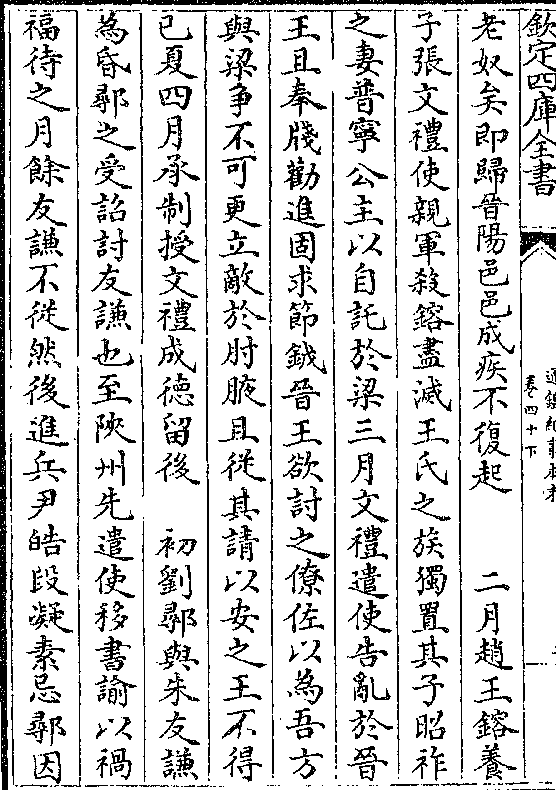 欽定四庫全書
通鑑紀事本末
卷四十下
老奴矣即歸晉陽邑邑成疾不復起　二月趙王鎔養
子張文禮使親軍殺鎔盡滅王氏之族獨置其子昭祚
之妻普寧公主以自託於梁三月文禮遣使告亂於晉
王且奉牋勸進因求節鉞晉王欲討之僚佐以為吾方
與梁爭不可更立敵於肘腋且從其請以安之王不得
已夏四月承制授文禮成德留後　初劉鄩與朱友謙
為昏鄩之受詔討友謙也至陝州先遣使移書諭以禍
福待之月餘友謙不從然後進兵尹皓段凝素忌鄩因